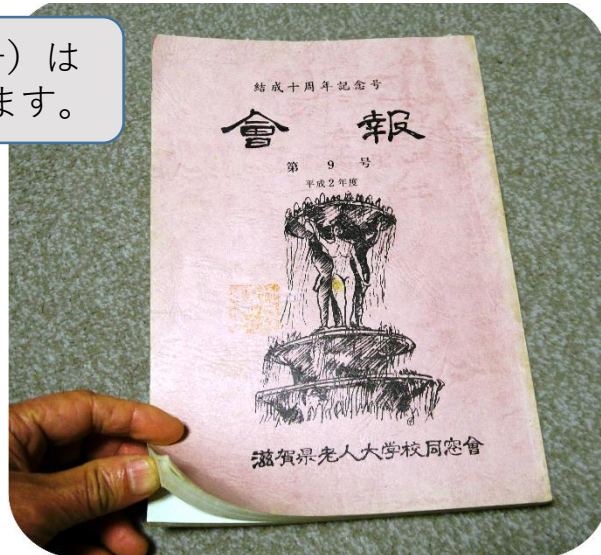 は
ます。
結成十周年記念号
會報
第9号
平成2年度
滋賀県老人大学校同窓會